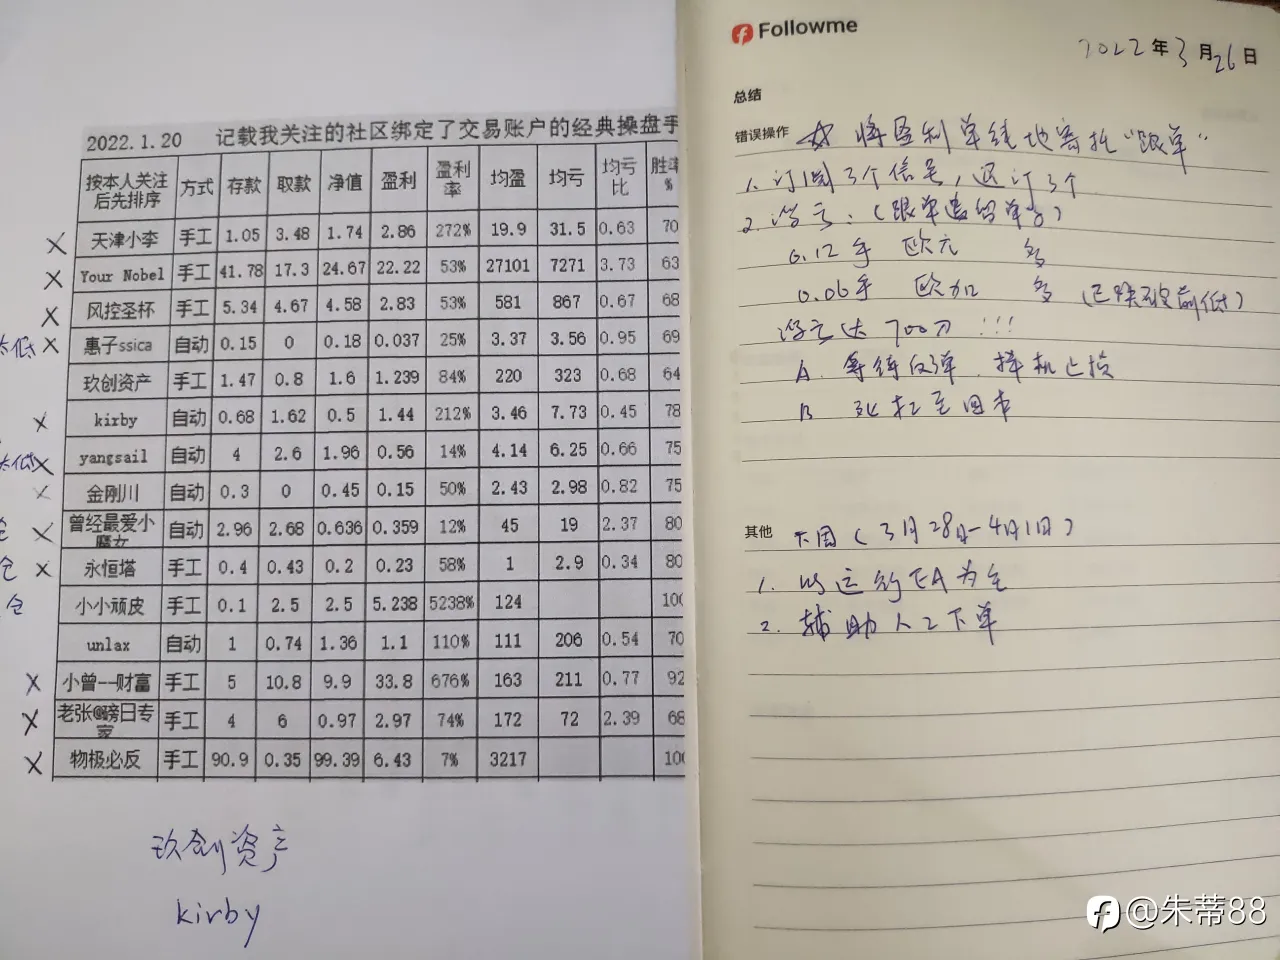 2022.1.20 记载我关注的社区绑定了交易账户的经典操盘手
按本人关注后先排序 方式 存款 取款 净值 盈利 盈利率 均盈 均亏 均亏比 胜率%
× 天津小李 手工 1.05 3.48 1.74 2.86 272% 19.9 31.5 0.63 70
× Your Nobel 手工 41.78 17.3 24.67 22.22 53% 27101 7271 3.73 63
× 风控圣杯 手工 5.34 4.67 4.58 2.83 53% 581 867 0.67 68
太低 × 惠子ssica 自动 0.15 0 0.18 0.037 25% 3.37 3.56 0.95 69
玖创资产 手工 1.47 0.8 1.6 1.239 84% 220 323 0.68 64
× kirby 自动 0.68 1.62 0.5 1.44 212% 3.46 7.73 0.45 78
太低 × yangsail 自动 4 2.6 1.96 0.56 14% 4.14 6.25 0.66 75
× 金刚川 自动 0.3 0 0.45 0.15 50% 2.43 2.98 0.82 75
仓 × 曾经最爱小魔女 自动 2.96 2.68 0.636 0.359 12% 45 19 2.37 80
仓 × 永恒塔 手工 0.4 0.43 0.2 0.23 58% 1 2.9 0.34 80
仓 小小顽皮 手工 0.1 2.5 2.5 5.238 5238% 124 100
unlax 自动 1 0.74 1.36 1.1 110% 111 206 0.54 70
× 小曾--财富 手工 5 10.8 9.9 33.8 676% 163 211 0.77 92
× 老张@磅日专家 手工 4 6 0.97 2.97 74% 172 72 2.39 68
× 物极必反 手工 90.9 0.35 99.39 6.43 7% 3217 100
玖创资产
kirby
Followme
2022年3月26日
总结
错误操作 ☆ 将盈利单纯地寄托"跟单"
1. 订阅3个信号,还订3个
2. 浮亏:(跟单遗留单子)
0.12手 欧元 多
0.06手 欧加 多 (已跌破前低)
浮亏达700刀!!!
A. 等待反弹,择机止损
B 死扛至回本
其他 下周(3月28日-4月1日)
1. 以运行EA为主
2. 辅助人工下单
@朱蒂88